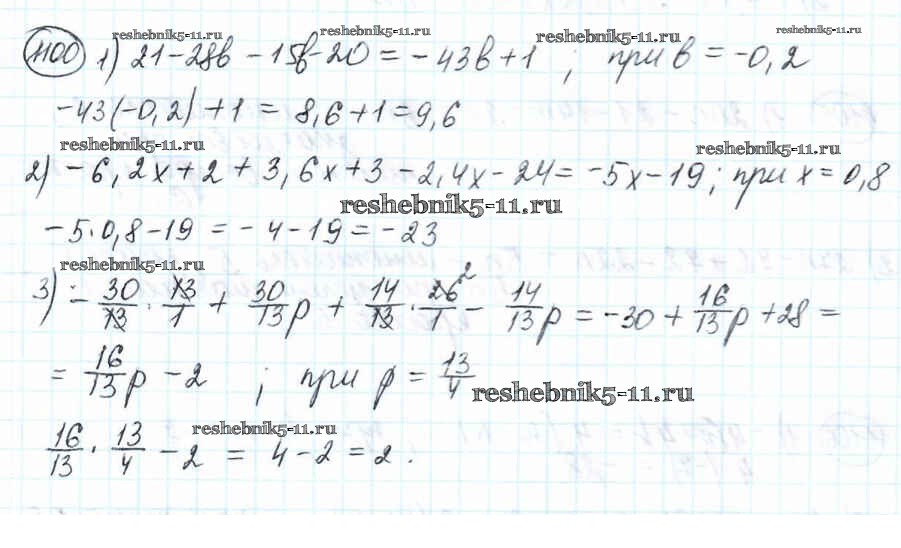 1100 1) 21-28в - 15в-20 = - 43в+1 ; при в = -0,2
-43(-0,2)+1 = 8,6+1=9,6
2) -6,2x+2 + 3,6x+3 -2,4x-24= -5x-19; при x=0,8
-5·0,8-19 = -4-19=-23
3) - 30/13 · 13/1 + 30/13 p + 14/13 · 26/1 2 - 14/13 p = -30+ 16/13 p +28 =
= 16/13 p -2 ; при p = 13/4
16/13 · 13/4 -2 = 4-2=2.
reshebnik5-11.ru
reshebnik5-11.ru
reshebnik5-11.ru
reshebnik5-11.ru
reshebnik5-11.ru
reshebnik5-11.ru
reshebnik5-11.ru
reshebnik5-11.ru
reshebnik5-11.ru